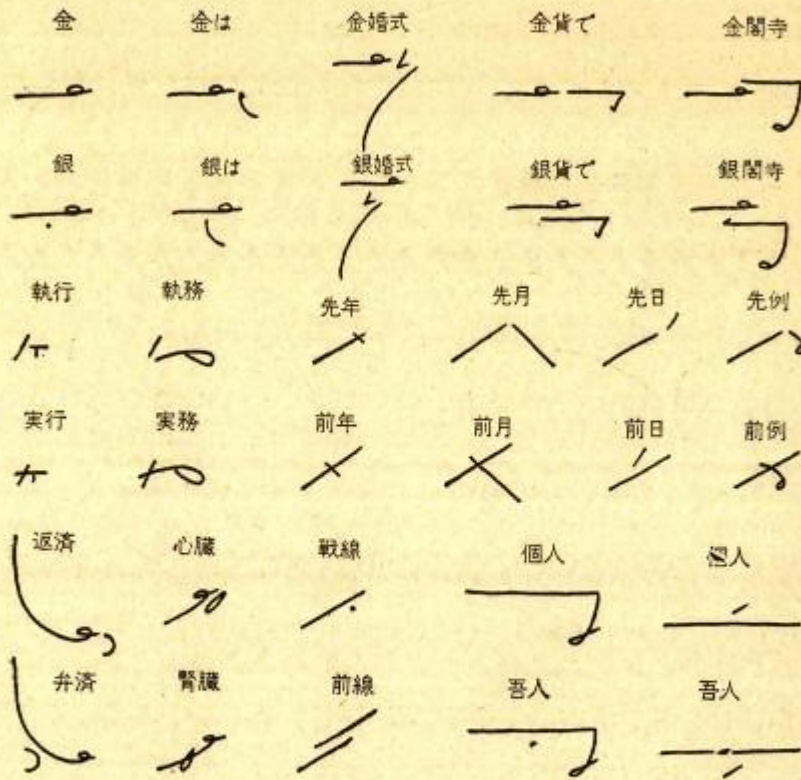 金 金は 金婚式 金貨で 金閣寺
銀 銀は 銀婚式 銀貨で 銀閣寺
執行 執務 先年 先月 先日 先例
実行 実務 前年 前月 前日 前例
返済 心臓 戦線 個人 個人
弁済 腎臓 前線 吾人 吾人